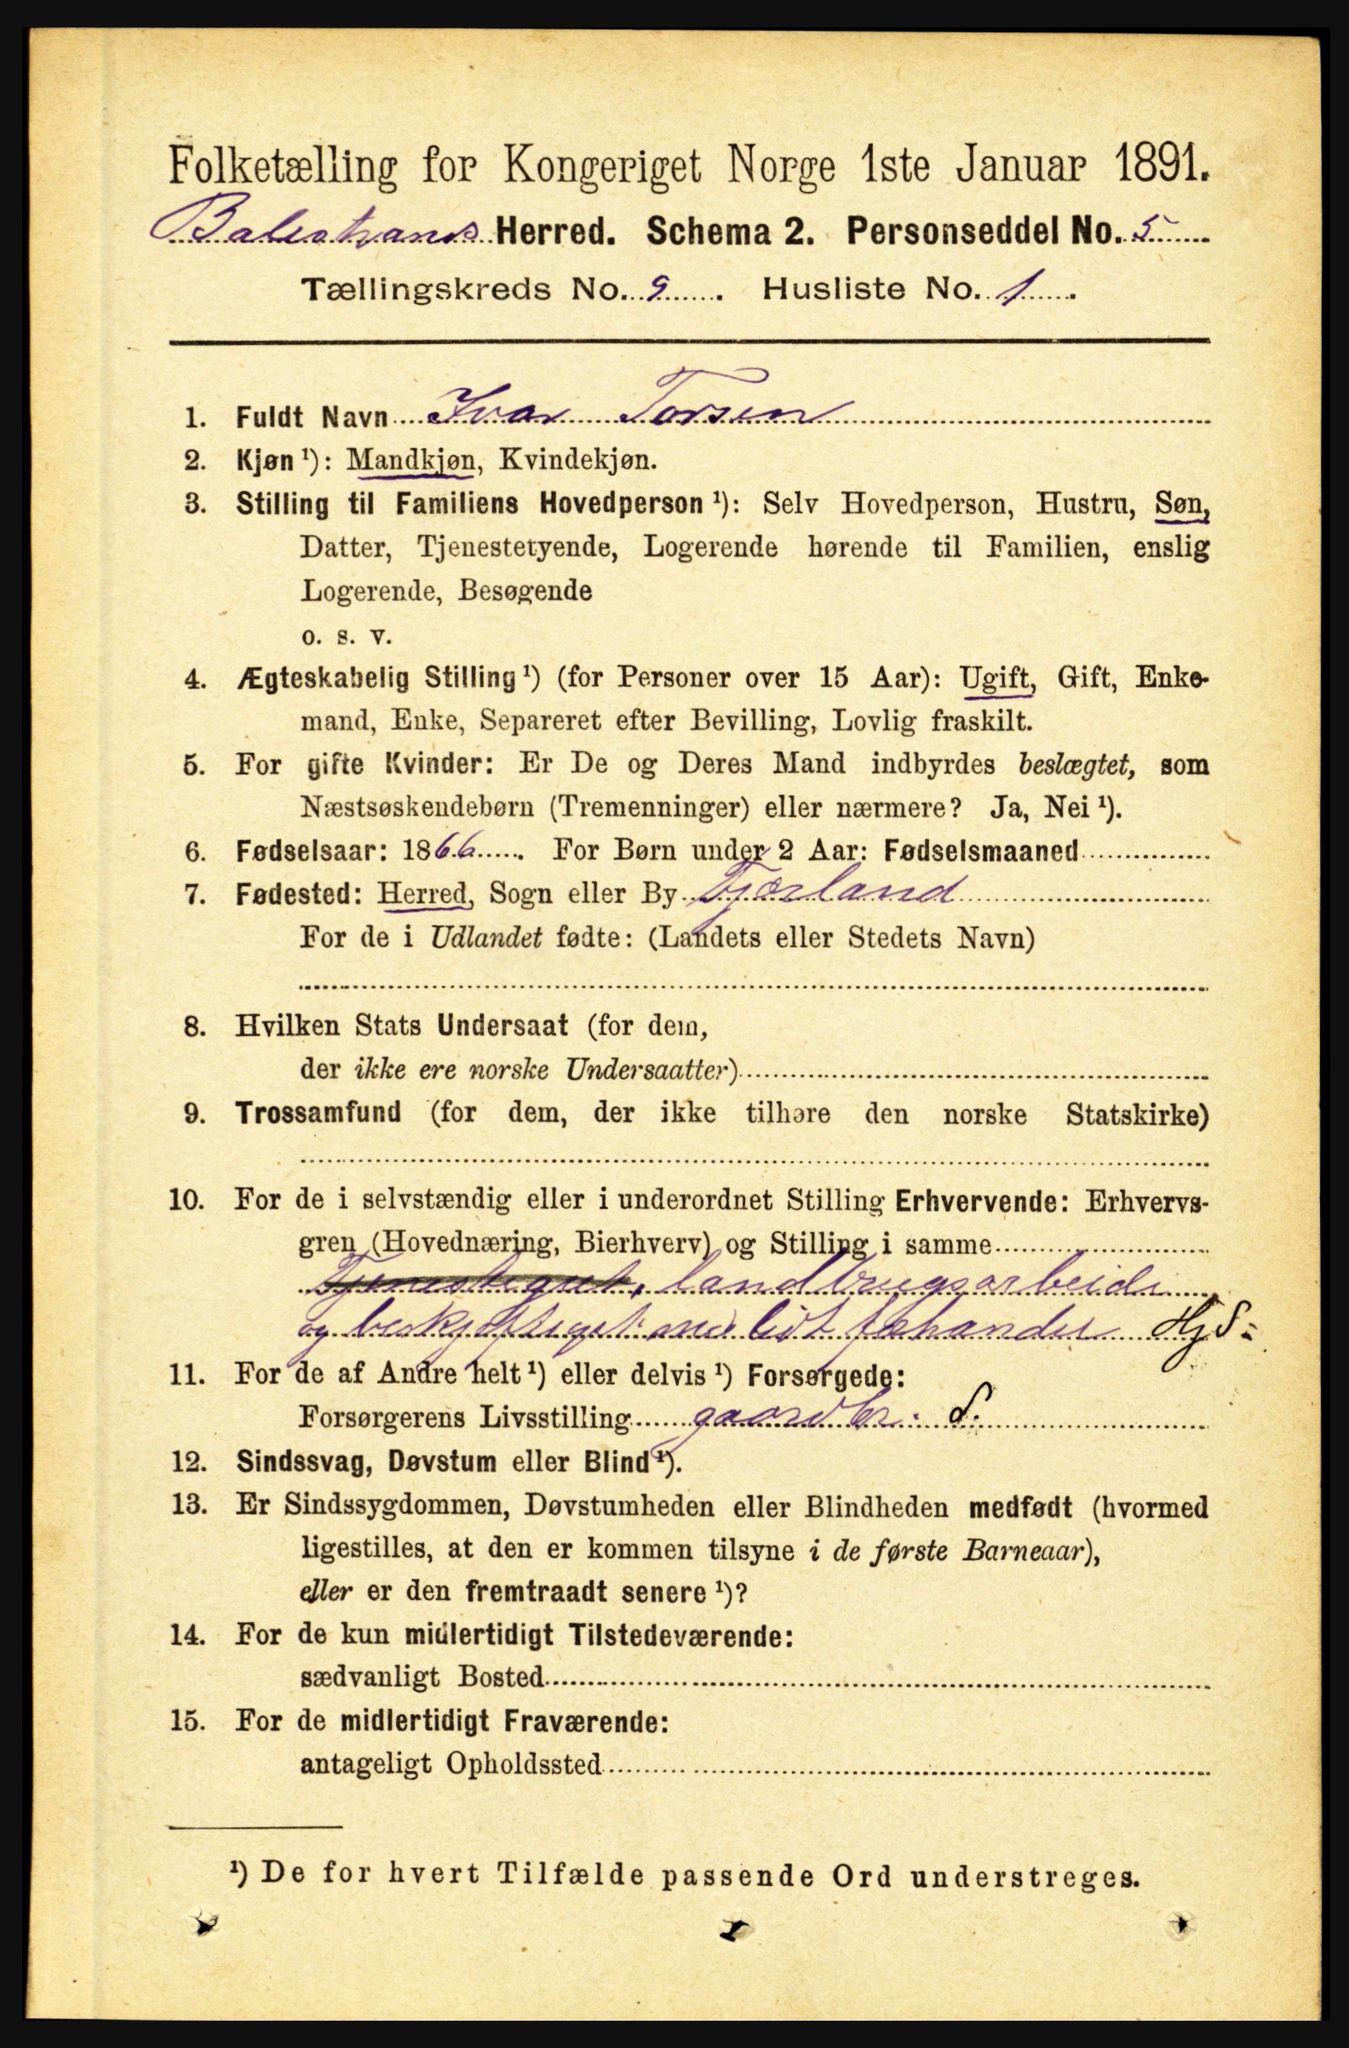 Folketælling for Kongeriget Norge 1ste Januar 1891.
Balestrands Herred. Schema 2. Personseddel No. 5
Tællingskreds No. 9. Husliste No. 1.
1. Fuldt Navn Ivar Torsen
2. Kjøn ¹): Mandkjøn, Kvindekjøn.
3. Stilling til Familiens Hovedperson ¹): Selv Hovedperson, Hustru, Søn,
Datter, Tjenestetyende, Logerende hørende til Familien, enslig
Logerende, Besøgende
o. s. v.
4. Ægteskabelig Stilling ¹) (for Personer over 15 Aar): Ugift, Gift, Enke-
mand, Enke, Separeret efter Bevilling, Lovlig fraskilt.
5. For gifte Kvinder: Er De og Deres Mand indbyrdes beslægtet, som
Næstsøskendebørn (Tremenninger) eller nærmere? Ja, Nei ¹).
6. Fødselsaar: 1866. For Børn under 2 Aar: Fødselsmaaned
7. Fødested: Herred, Sogn eller By Fjærland
For de i Udlandet fødte: (Landets eller Stedets Navn)
8. Hvilken Stats Undersaat (for dem,
der ikke ere norske Undersaatter)
9. Trossamfund (for dem, der ikke tilhøre den norske Statskirke)
10. For de i selvstændig eller i underordnet Stilling Erhvervende: Erhvervs-
gren (Hovednæring, Bierhverv) og Stilling i samme
landbrugsarbeide
og beskjeftiget med lidt fæhandel HjS.
11. For de af Andre helt ¹) eller delvis ¹) Forsørgede:
Forsørgerens Livsstilling gaardbr. S.
12. Sindssvag, Døvstum eller Blind ¹).
13. Er Sindssygdommen, Døvstumheden eller Blindheden medfødt (hvormed
ligestilles, at den er kommen tilsyne i de første Barneaar),
eller er den fremtraadt senere ¹)?
14. For de kun midlertidigt Tilstedeværende:
sædvanligt Bosted
15. For de midlertidigt Fraværende:
antageligt Opholdssted
¹) De for hvert Tilfælde passende Ord understreges.